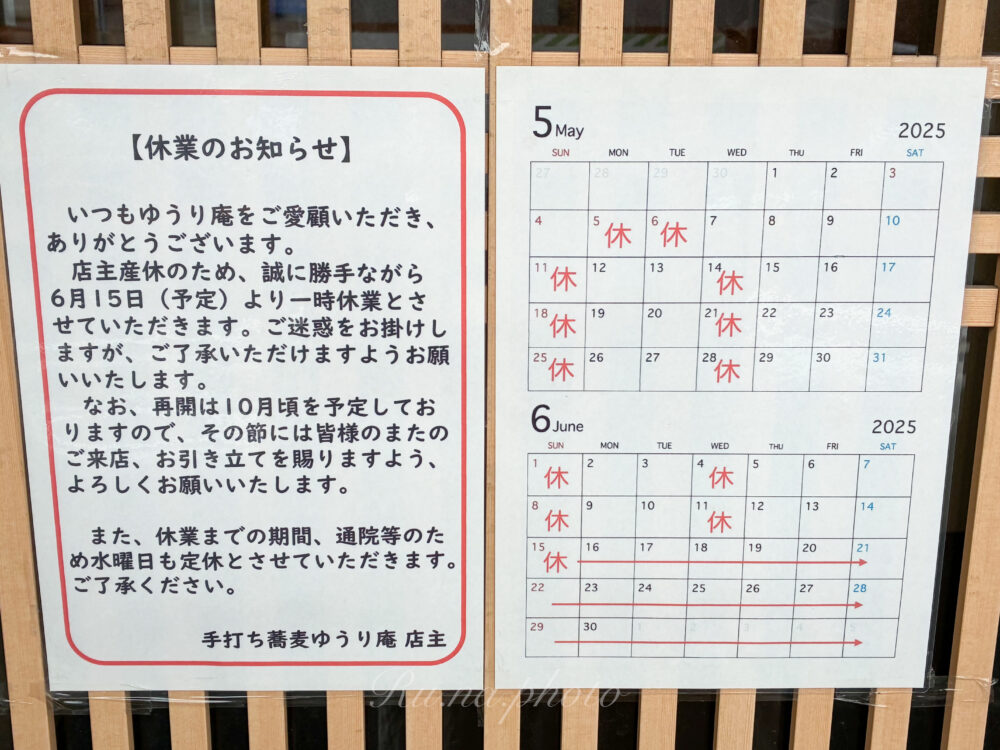 【休業のお知らせ】
いつもゆうり庵をご愛顧いただき、
ありがとうございます。
店主産休のため、誠に勝手ながら
6月15日（予定）より一時休業とさ
せていただきます。ご迷惑をお掛けし
ますが、ご了承いただけますようお願
いいたします。
なお、再開は10月頃を予定してお
りますので、その節には皆様のまたの
ご来店、お引き立てを賜りますよう、
よろしくお願いいたします。
また、休業までの期間、通院等のた
め水曜日も定休とさせていただきます。
ご了承ください。
手打ち蕎麦ゆうり庵 店主
5 May 2025
SUN MON TUE WED THU FRI SAT
27 28 29 30 1 2 3
4 5 休 6 休 7 8 9 10
11 休 12 13 14 休 15 16 17
18 休 19 20 21 休 22 23 24
25 休 26 27 28 休 29 30 31
6 June 2025
SUN MON TUE WED THU FRI SAT
1 休 2 3 4 休 5 6 7
8 休 9 10 11 休 12 13 14
15 休 16 17 18 19 20 21
22 23 24 25 26 27 28
29 30 1 2 3 4 5
Ru.na.photo